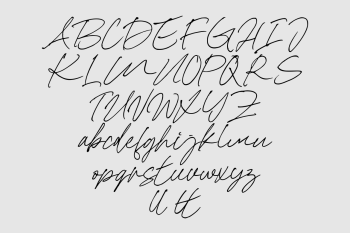 ABCDEFGHIJ
KLMNOPQRS
TUVWXYZ
abcdefghijklmnu
opqrstuvwxyz
tt